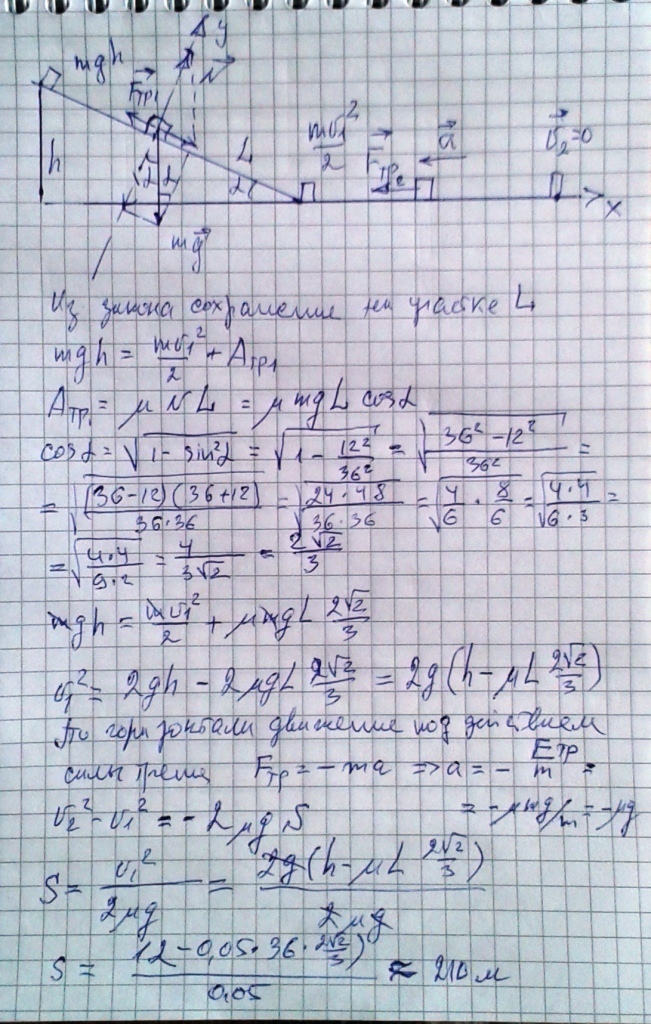 mgh
y
N
Fтр1
h
L
α
α
mg
mv₁²/2
Fтр2
a
v₂=0
x
Из закона сохранение на участке L
mgh = mv₁²/2 + Aтр1
Aтр1 = μNL = μmgL cosα
cosα = √(1 - sin²α) = √(1 - 12²/36²) = √((36² - 12²)/36²) =
= √((36-12)(36+12)/(36·36)) = √(24·48/(36·36)) = √(4/6 · 8/6) = √(4·4/(6·3)) =
= √(4·4/(9·2)) = 4/(3√2) = 2√2/3
mgh = mv₁²/2 + μmgL 2√2/3
v₁² = 2gh - 2μgL 2√2/3 = 2g(h - μL 2√2/3)
По горизонтали движение под действием
силы трения Fтр = -ma => a = - Fтр/m =
= -μmg/m = -μg
v₂² - v₁² = -2μgS
S = v₁²/(2μg) = 2g(h - μL 2√2/3)/(2μg)
S = (12 - 0,05·36·2√2/3)/0,05 ≈ 210м